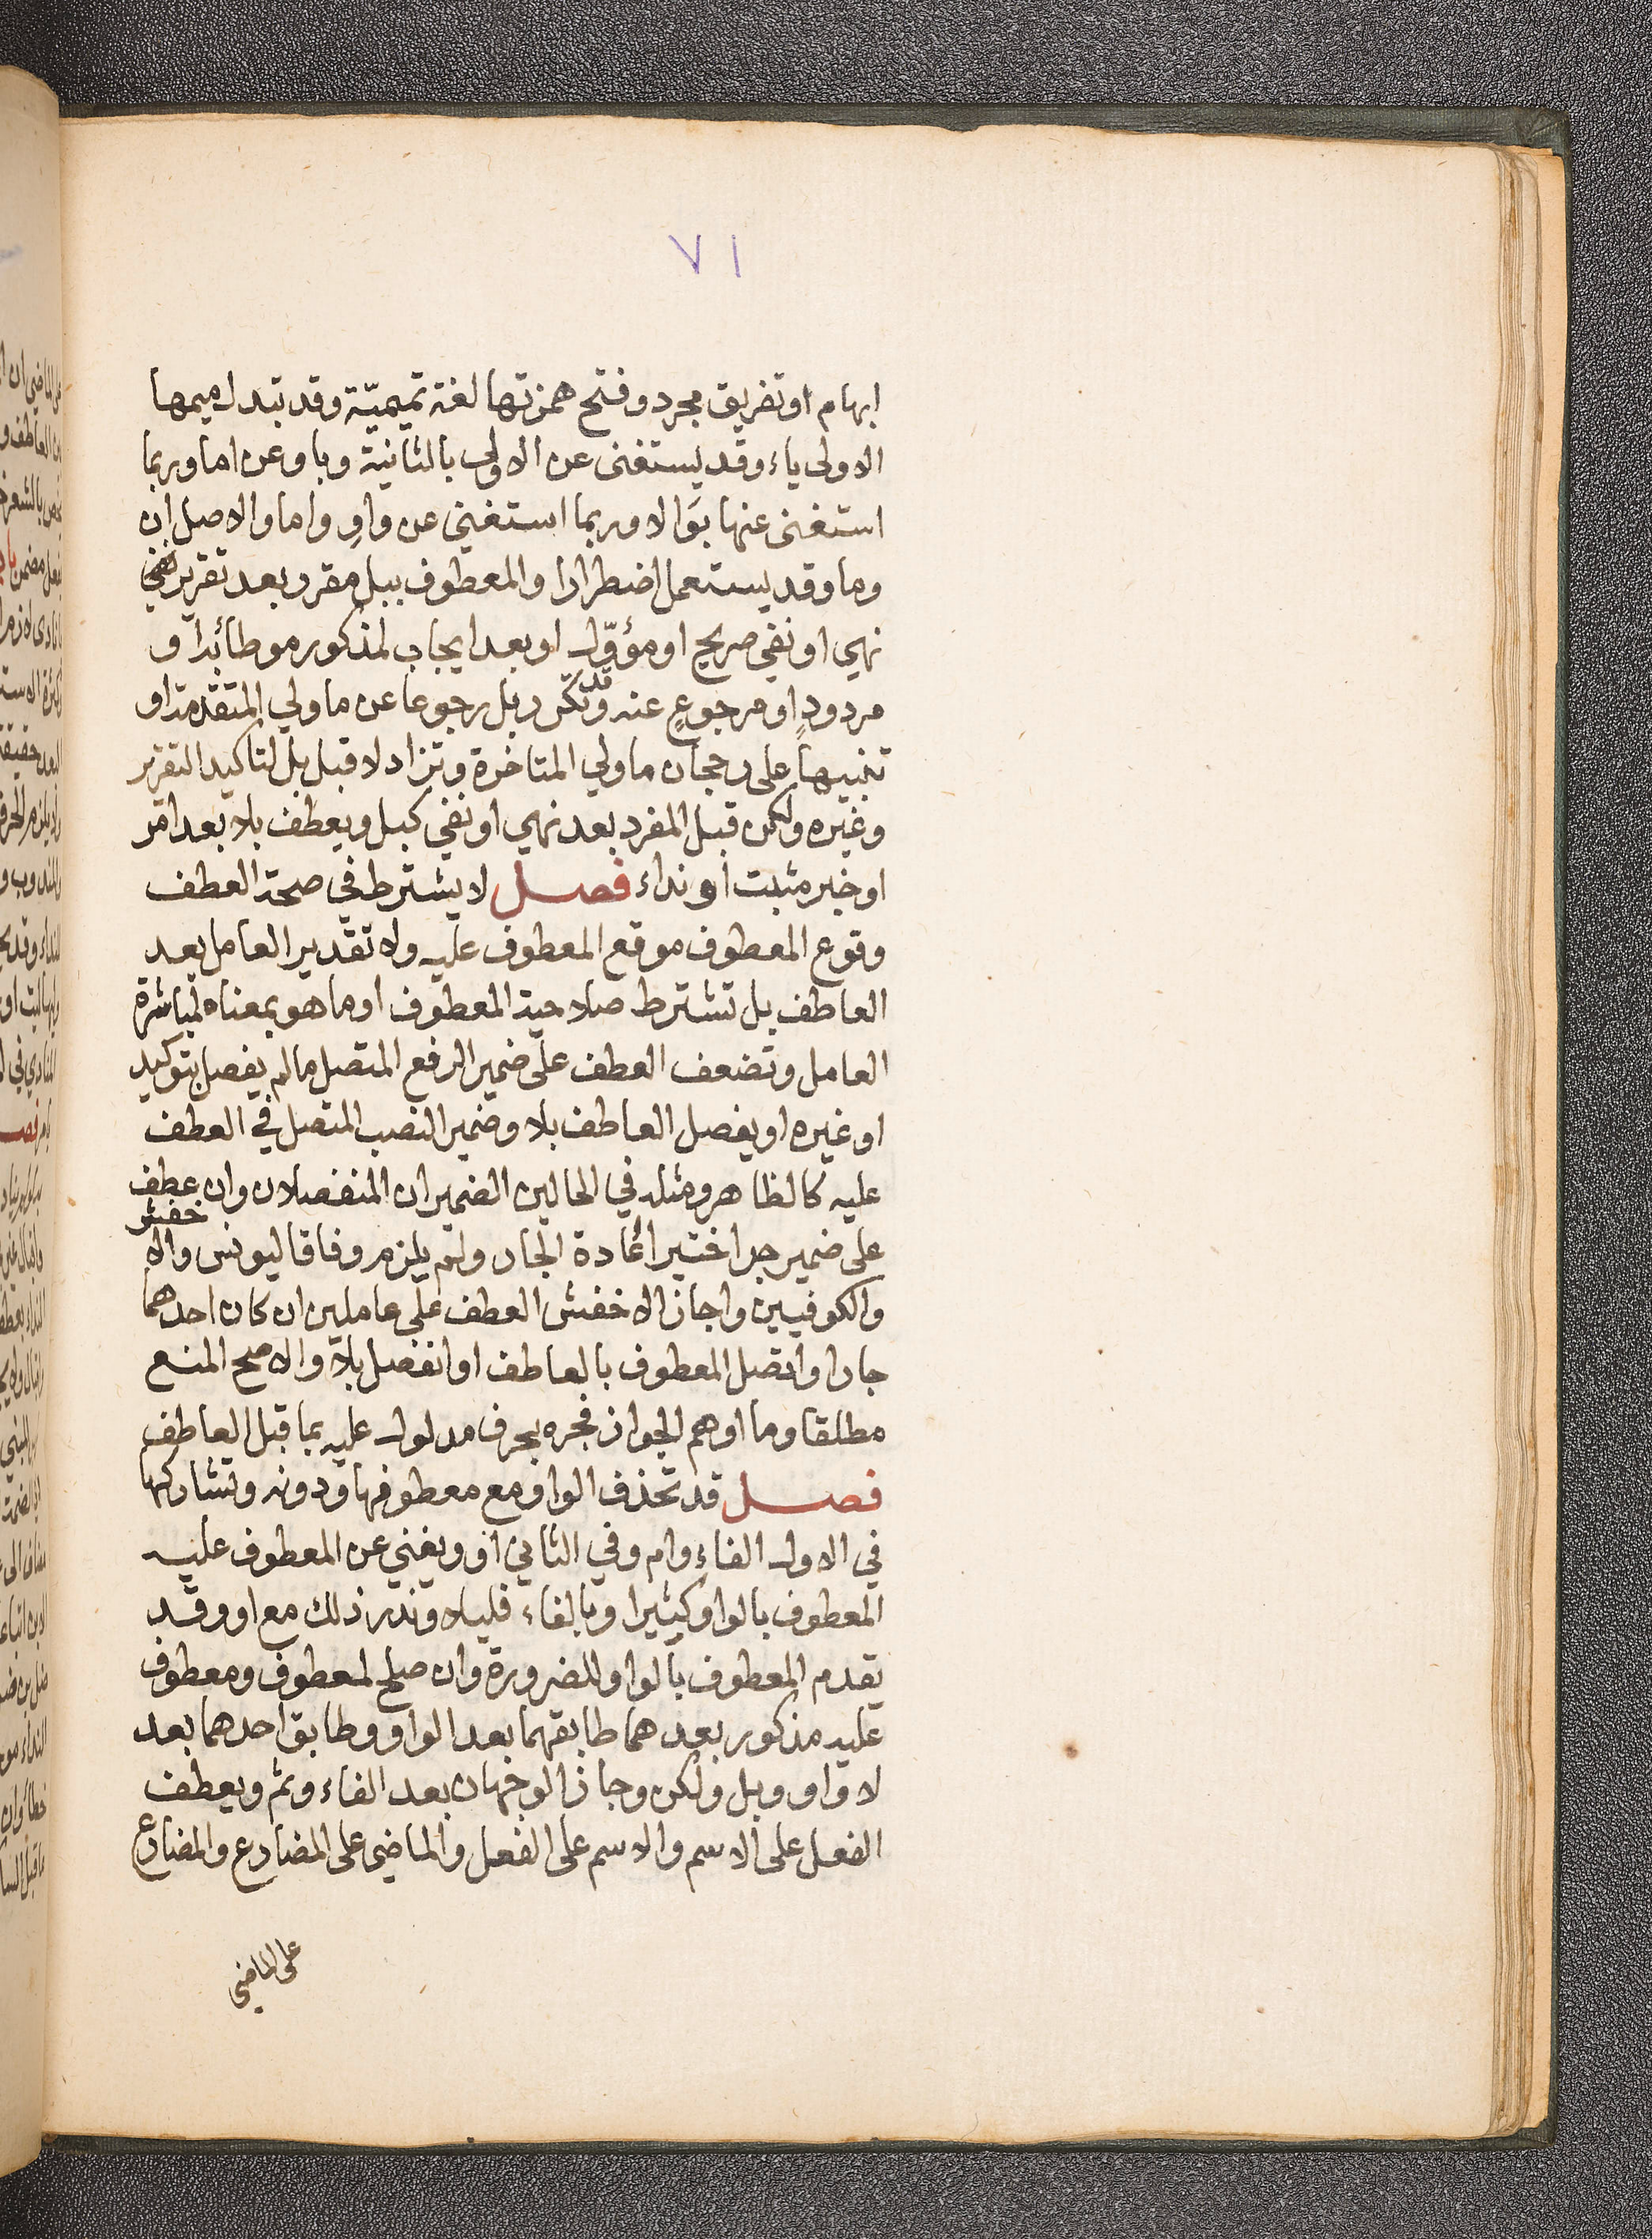 ٧١
ابهام او تفريق مجرد وفتح همزتها لغة تميميّة وقد تبدل ميمها
الاولى ياء وقد يستغنى عن الاولى بالثانية وباو عن اما وربما
استغنى عنها بوالا وربما استغني عن واو واما والاصل ان
وما وقد يستعمل اضطرارا والمعطوف ببل مقرر بعد تقرير نفي
نهي او نفي صريح او مؤوّل او بعد ايجاب لمذكور موطأ به او
مردودٍ او مرجوعٍ عنه وقد تكرر بل رجوعا عن ما ولي المتقدمة او
تنبيهاً على رجحان ما ولي المتاخرة وتزاد لا قبل بل لتاكيد التقرير
وغيره ولكن قبل المفرد بعد نهي او نفي كبل ويعطف بلا بعد امر
او خبر مثبت او نداء فصل لا يشترط في صحة العطف
وقوع المعطوف موقع المعطوف عليه ولا تقدير العامل بعد
العاطف بل تشترط صلاحية المعطوف او ما هو بمعناه لمباشرة
العامل وتضعف العطف على ضمير الرفع المتصل ما لم يفصل بتوكيد
او غيره او يفصل العاطف بلا وضمير النصب المتصل في العطف
عليه كالظاهر ومثله في الحالين الضميران المنفصلان وان عطف
على ضمير جر اختير اعادة الجار ولم يلزم وفاقا ليونس والاخفش
والكوفيين واجاز الاخفش العطف على عاملين ان كان احدهما
جارا واتصل المعطوف بالعاطف او انفصل بلا والاصح المنع
مطلقا وما اوهم الجواز فجره بحرف مدلول عليه بما قبل العاطف
فصل قد تحذف الواو مع معطوفها ودونه وتشاركها
في الاول الفاء وام وفي الثاني او ويغني عن المعطوف عليه
المعطوف بالواو كثيرا وبالفاء قليلا وندر ذلك مع او وقد
يقدم المعطوف بالواو للضرورة وان صلح لمعطوف ومعطوف
عليه مذكور بعدهما طابقهما بعد الواو وطابق احدهما بعد
لا واو وبل ولكن وجاز الوجهان بعد الفاء وثم ويعطف
الفعل على الاسم والاسم على الفعل والماضي على المضارع والمضارع
على الماضي